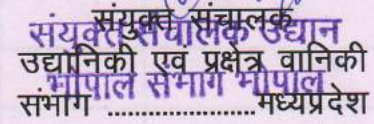 संयुक्त संचालक
संयुक्त संचालक उद्यान
उद्यानिकी एवं प्रक्षेत्र वानिकी
भोपाल संभाग भोपाल
संभाग ....................मध्यप्रदेश